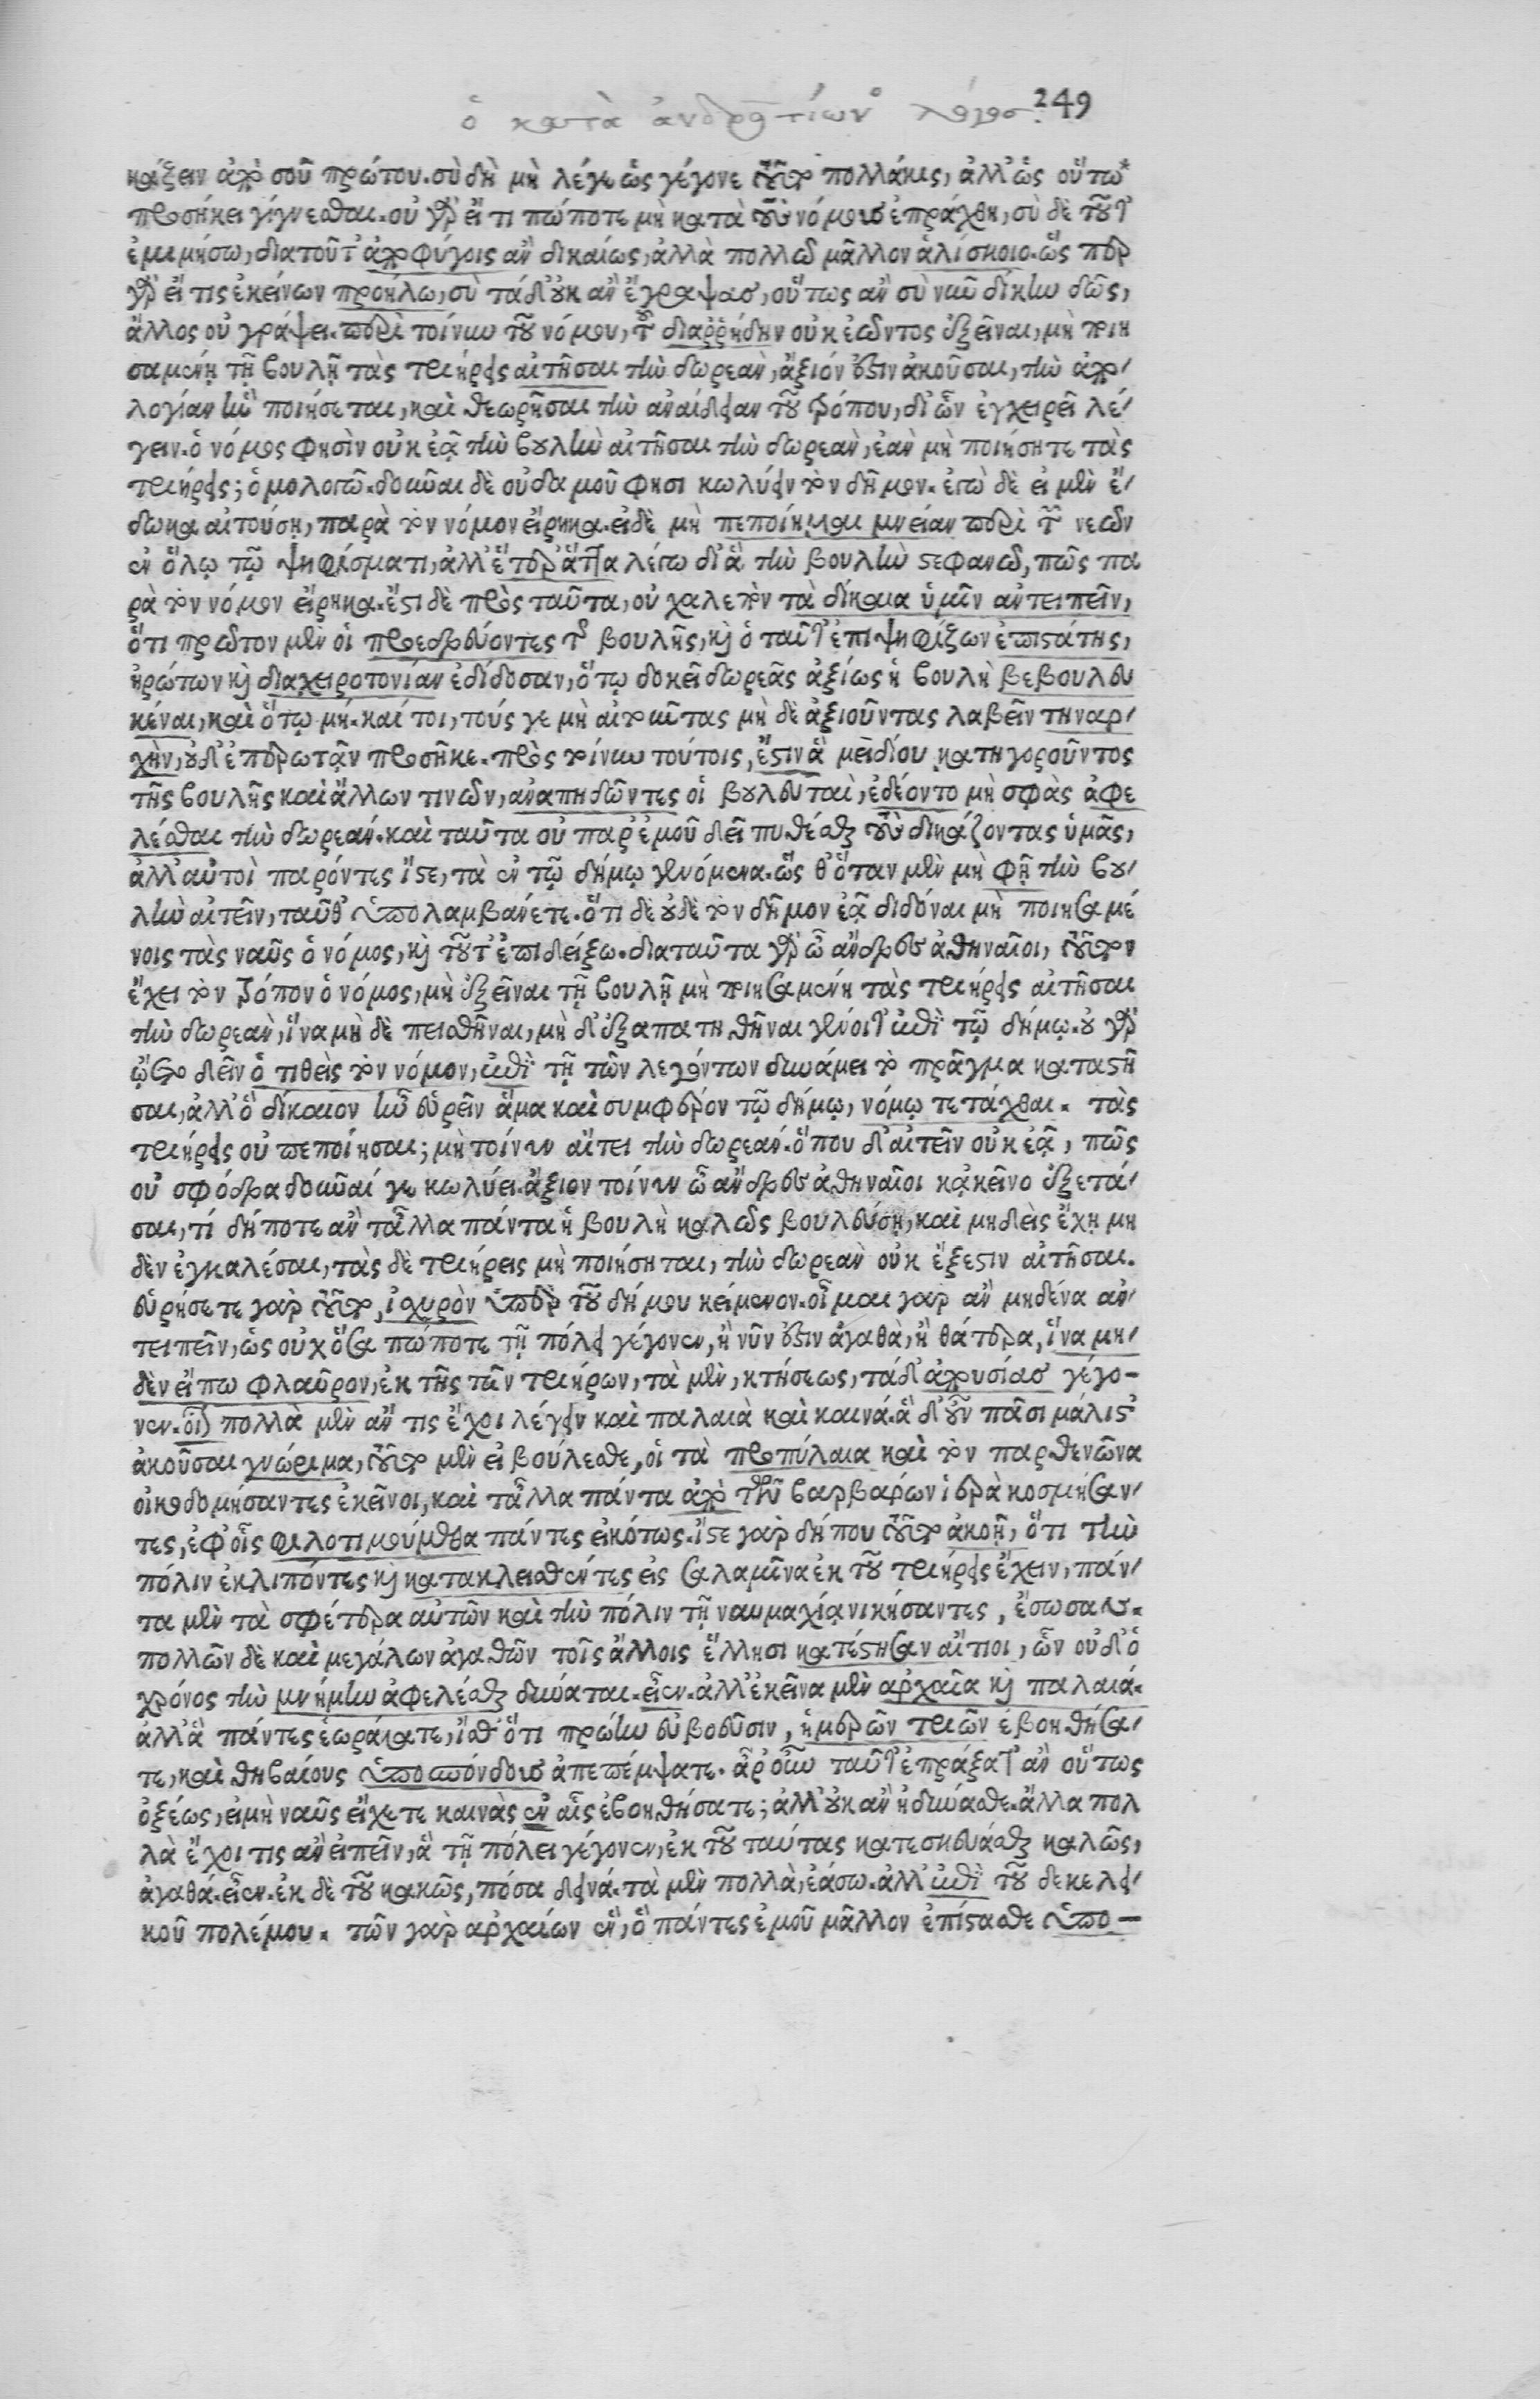 ὁ κατὰ ἀνδροτίωνος λόγος. 249
κάζειν ἀπὸ σοῦ πρώτου. σὺ δὴ μὴ λέγε ὡς γέγονε τοῦτο πολλάκις, ἀλλ' ὡς οὕτω*
προσήκει γίγνεσθαι. οὐ γὰρ εἴ τι πώποτε μὴ κατὰ τοὺς νόμους ἐπράχθη, σὺ δὲ τοῦτ'
ἐμιμήσω, διατοῦτ' ἀποφύγοις ἂν δικαίως, ἀλλὰ πολλῶ μᾶλλον ἁλίσκοιο. ὥς περ
γὰρ εἴ τις ἐκείνων προήλω, σὺ τάδ' οὐκ ἂν ἔγραψας, οὕτως ἂν σὺ νῦν δίκην δῶς,
ἄλλος οὐ γράψει. περὶ τοίνυν τοῦ νόμου, τοῦ διαῤῥήδην οὐκ ἐῶντος ἐξεῖναι, μὴ ποιη
σαμένῃ τῇ βουλῇ τὰς τριήρεις αἰτῆσαι τὴν δωρεὰν, ἄξιόν ἐστιν ἀκοῦσαι, τὴν ἀπο-
λογίαν ἣν ποιήσεται, καὶ θεωρῆσαι τὴν ἀναίδειαν τοῦ τρόπου, δι' ὧν ἐγχειρεῖ λέ-
γειν. ὁ νόμος φησὶν οὐκ ἐᾷ τὴν βουλὴν αἰτῆσαι τὴν δωρεὰν, ἐὰν μὴ ποιήσητε τὰς
τριήρεις; ὁμολογῶ. δοῦναι δὲ οὐδαμοῦ φησι κωλύειν τὸν δῆμον. ἐγὼ δὲ εἰ μὲν ἔ-
δωκα αἰτούσῃ, παρὰ τὸν νόμον εἴρηκα. εἰδὲ μὴ πεποίημαι μνείαν περὶ τῶν νεῶν
ἐν ὅλῳ τῷ ψηφίσματι, ἀλλ' ἕτερ' ἄττα λέγω δι' ἃ τὴν βουλὴν στεφανῶ, πῶς πα
ρὰ τὸν νόμον εἴρηκα. ἔστι δὲ πρὸς ταῦτα, οὐ χαλεπὸν τὰ δίκαια ὑμῖν ἀντειπεῖν,
ὅτι πρῶτον μὲν οἱ προεδρεύοντες τῆς βουλῆς, καὶ ὁ ταῦτ' ἐπιψηφίζων ἐπιστάτης,
ἠρώτων καὶ διαχειροτονίαν ἐδίδοσαν, ὅτῳ δοκεῖ δωρεᾶς ἀξίως ἡ βουλὴ βεβουλευ
κέναι, καὶ ὅτῳ μή. καίτοι, τούς γε μὴ αἰτοῦντας μὴ δὲ ἀξιοῦντας λαβεῖν τηναρ-
χὴν, οὐδ' ἐπερωτᾶν προσῆκε. πρὸς τοίνυν τούτοις, ἔστιν ἃ μειδίου κατηγοροῦντος
τῆς βουλῆς καὶ ἄλλων τινῶν, ἀναπηδῶντες οἱ βουλευταὶ, ἐδέοντο μὴ σφὰς ἀφε
λέσθαι τὴν δωρεάν. καὶ ταῦτα οὐ παρ' ἐμοῦ δεῖ πυθέσθαι τοὺς δικάζοντας ὑμᾶς,
ἀλλ' αὐτοὶ παρόντες ἴστε, τὰ ἐν τῷ δήμῳ γενόμενα. ὥς θ' ὅταν μὲν μὴ φῇ τὴν βου-
λὴν αἰτεῖν, ταῦθ' ὑπολαμβάνετε. ὅτι δὲ οὐδὲ τὸν δῆμον ἐᾷ διδόναι μὴ ποιησαμέ
νοις τὰς ναῦς ὁ νόμος, καὶ τοῦτ' ἐπιδείξω. διαταῦτα γὰρ ὦ ἄνδρες ἀθηναῖοι, τοῦτον
ἔχει τὸν τρόπον ὁ νόμος, μὴ ἐξεῖναι τῇ βουλῇ μὴ ποιησαμένῃ τὰς τριήρεις αἰτῆσαι
τὴν δωρεὰν, ἵνα μὴ δὲ πεισθῆναι, μὴ δ' ἐξαπατηθῆναι γένοιτ' ἐπὶ τῷ δήμῳ. οὐ γὰρ
ᾤετο δεῖν ὁ τιθεὶς τὸν νόμον, ἐπὶ τῇ τῶν λεγόντων δυνάμει τὸ πρᾶγμα καταστῆ
σαι, ἀλλ' ὃ δίκαιον ἦν εὑρεῖν ἅμα καὶ συμφέρον τῷ δήμῳ, νόμῳ τετάχθαι. τὰς
τριήρεις οὐ πεποίησαι; μὴ τοίνυν αἴτει τὴν δωρεάν. ὅπου δ' αἰτεῖν οὐκ ἐᾷ, πῶς
οὐ σφόδρα δοῦναί γε κωλύει. ἄξιον τοίνυν ὦ ἄνδρες ἀθηναῖοι κἀκεῖνο ἐξετά-
σαι, τί δήποτε ἂν τἆλλα πάντα ἡ βουλὴ καλῶς βουλεύσῃ, καὶ μηδεὶς ἔχῃ μη
δὲν ἐγκαλέσαι, τὰς δὲ τριήρεις μὴ ποιήσηται, τὴν δωρεὰν οὐκ ἔξεστιν αἰτῆσαι.
εὑρήσετε γὰρ τοῦτο, ἰσχυρὸν ὑπὲρ τοῦ δήμου κείμενον. οἶμαι γὰρ ἂν μηδένα ἀν-
τειπεῖν, ὡς οὐχ ὅσα πώποτε τῇ πόλει γέγονεν, ἢ νῦν ἐστιν ἀγαθὰ, ἢ θάτερα, ἵνα μη-
δὲν εἴπω φλαῦρον, ἐκ τῆς τῶν τριήρων, τὰ μὲν, κτήσεως, τάδ' ἀπουσίας γέγο-
νεν. οἷον πολλὰ μὲν ἄν τις ἔχοι λέγειν καὶ παλαιὰ καὶ καινά. ἃ δ' οὖν πᾶσι μάλιστ'
ἀκοῦσαι γνώριμα, τοῦτο μὲν εἰ βούλεσθε, οἱ τὰ προπύλαια καὶ τὸν παρθενῶνα
οἰκοδομήσαντες ἐκεῖνοι, καὶ τἆλλα πάντα ἀπὸ τῶν βαρβάρων ἱερὰ κοσμήσαν-
τες, ἐφ' οἷς φιλοτιμούμεθα πάντες εἰκότως. ἴστε γὰρ δήπου τοῦτο ἀκοῇ, ὅτι τὴν
πόλιν ἐκλιπόντες καὶ κατακλεισθέντες εἰς σαλαμῖνα ἐκ τοῦ τριήρεις ἔχειν, πάν-
τα μὲν τὰ σφέτερα αὐτῶν καὶ τὴν πόλιν τῇ ναυμαχίᾳ νικήσαντες, ἔσωσαν.
πολλῶν δὲ καὶ μεγάλων ἀγαθῶν τοῖς ἄλλοις ἕλλησι κατέστησαν αἴτιοι, ὧν οὐδ' ὁ
χρόνος τὴν μνήμην ἀφελέσθαι δύναται. εἶεν. ἀλλ' ἐκεῖνα μὲν ἀρχαῖα καὶ παλαιά.
ἀλλ' ἃ πάντες ἑωράκατε, ἴσθ' ὅτι πρώην εὐβοεῦσιν, ἡμερῶν τριῶν ἐβοηθήσα-
τε, καὶ θηβαίους ὑποσπόνδους ἀπεπέμψατε. ἆρ' οὖν ταῦτ' ἐπράξατ' ἂν οὕτως
ὀξέως, εἰμὴ ναῦς εἴχετε καινὰς ἐν αἷς ἐβοηθήσατε; ἀλλ' οὐκ ἂν ἠδύνασθε. ἄλλα πολ
λὰ ἔχοι τις ἂν εἰπεῖν, ἃ τῇ πόλει γέγονεν, ἐκ τοῦ ταύτας κατεσκευάσθαι καλῶς,
ἀγαθά. εἶεν. ἐκ δὲ τοῦ κακῶς, πόσα δεινά. τὰ μὲν πολλὰ, ἐάσω. ἀλλ' ἐπὶ τοῦ δεκελει-
κοῦ πολέμου. τῶν γὰρ ἀρχαίων ἓν, ὃ πάντες ἐμοῦ μᾶλλον ἐπίστασθε ὑπο-